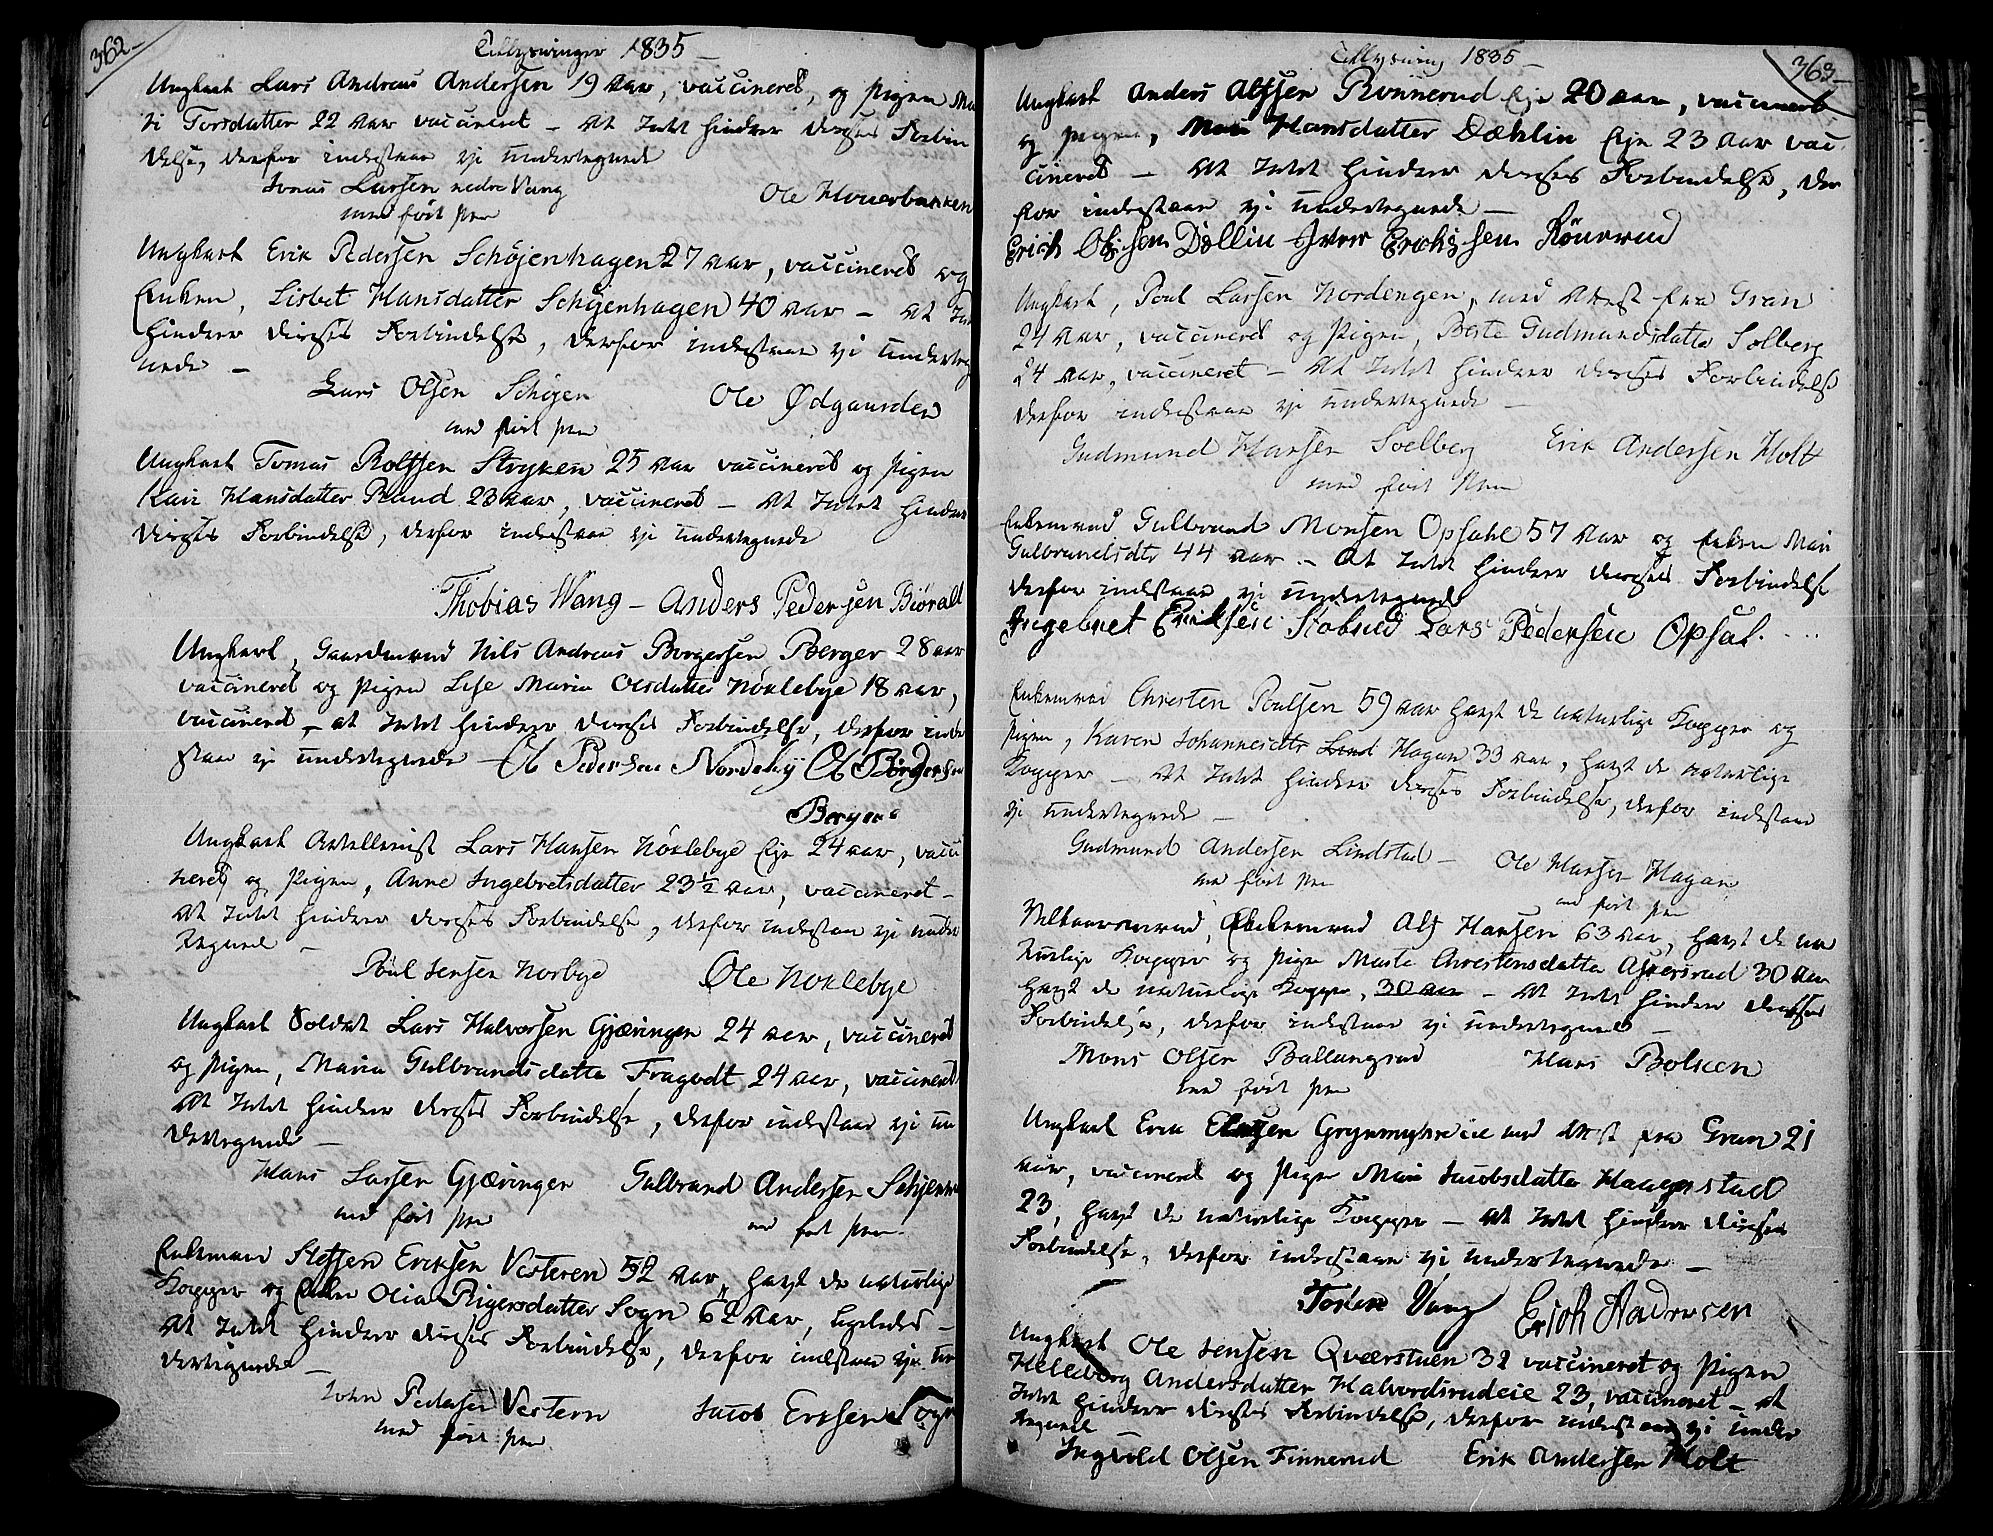 362
Tillysninger 1835
Ungkarl Lars Andreas Andersen 19 Aar, vaccineret, og Pigen Ma
ri Torsdatter 22 Aar vaccineret – At Intet hindrer deres Forbin
delse, derfor indestaae vi undertegnede
Lars Larsen nedre Vang
Ole Houerbakken
med ført Pen
Ungkarl Erik Pedersen Schöjenhagen 27 Aar, vaccineret og
Enken, Lisbet Hansdatter Schöjenhagen 40 Aar – At Intet
hindrer deres Forbindelse, derfor indestaae vi underteg
nede –
Lars Olsen Schöjen
Ole Ødgaarden
med ført Pen
Ungkarl Tomas Rolfsen Stryken 25 Aar vaccineret og Pigen
Kari Hansdatter Rand 23 Aar, vaccineret – At Intet hindrer
deres Forbindelse, derfor indestaae vi undertegnede
Thobias Wang – Anders Pedersen Biøralt
Ungkarl, Gaardmand Nils Andreas Borgersen Berger 28 Aar
vaccineret og Pigen Lise Maria Olsdatter Nøklebye 18 Aar,
vaccineret – at Intet hindrer deres Forbindelse, derfor inde
staae vi undertegnede – Ole Pedersen Nordeby Ole Børgersen
Berger
Ungkarl Artellerist Lars Hansen Nöklebye Eje 24 Aar, vacci
neret og Pigen, Anne Ingebretsdatter 23½ Aar, vaccineret –
At Intet hindrer deres Forbindelse, derfor indestaae vi under
tegnede –
Poul Jensen Norbye
Ole Noklebye
Ungkarl Soldat Lars Halvorsen Gjæringen 24 Aar, vaccineret
og Pigen, Maria Gulbrandsdatte Fragodt 24 Aar, vaccineret
At Intet hindrer deres Forbindelse, derfor indestaae vi un
dertegnede –
Hans Larsen Gjæringen
Gulbrand Andersen Schjen
med ført Pen
med ført Pen
Enkemand Steffen Eriksen Vesteren 52 Aar, havt de naturlige
Kopper og Enken Olia Rigersdatter Sogn 62 Aar, ligeledes –
At Intet hindrer deres Forbindelse, derfor indestaae vi un
dertegnede –
John Pedersen Vestern
Jacob Ericsen Sogn
med ført Pen
363
Tillysning 1835
Ungkarl Anders Alfsen Rönnerud Eje 20 Aar, vaccineret
og Pigen, Mari Hansdatter Dæhlin Eje 23 Aar vac
cineret – At Intet hindrer deres Forbindelse, der
for indestaae vi undertegnede –
Erich Olssen Döllin Iver Erichssen Rönnerud
Ungkarl, Poul Larsen Nordengen, med Attest fra Gran
24 Aar, vaccineret og Pigen, Berte Gudmundsdatte Solberg
24 Aar, vaccineret – At Intet hindrer deres Forbindelse
derfor indestaae vi undertegnede –
Gudmund Hansen Soelberg
Erik Andersen Holt
med ført Pen
Enkemand Gulbrand Monsen Opsahl 57 Aar og Enken Mari
Gulbrandsdtr 44 Aar – At Intet hindrer deres Forbindelse
derfor indestaae vi undertegnede
Ingebret Eriksen Stabrud Lars Pedersen Opsal.
Enkemand Christen Poulsen 59 Aar havt de naturlige Kopper og
Pigen, Karen Johannesdtr Hagan 33 Aar, havt de naturlige
Kopper – At Intet hindrer deres Forbindelse, derfor indestaae
vi undertegnede –
Gudmund Andersen Lindstad –
Ole Hansen Hagan
med ført Pen
med ført Pen
Enkemand Alf Hansen 63 Aar, havt de na
turlige Kopper og Pigen Marte Christensdatte Askersrud 30 Aar
havt de naturlige Kopper, 30 Aar – At Intet hindrer deres
Forbindelse, derfor indestaae vi undertegnede –
Mons Olsen Ballangrud
Hans Bolken
med ført Pen
Ungkarl Erik Elefsen Grynmyhreie med Attest fra Gran 21
Aar, vaccineret og Pigen Mari Jacobsdatte Haagenstad
23, havt de naturlige Kopper – At Intet hindrer deres
Forbindelse, derfor indestaae vi undertegnede –
Torten Vang Erich Andresen
Ungkarl Ole Jensen Qværstuen 32 vaccineret og Pigen
Helleborg Andersdatter Halvordsrudeie 23, vaccineret – at
Intet hindrer deres Forbindelse, derfor indestaae vi under
tegnede
Ingvold Olsen Finnerud Erik Andersen Holt